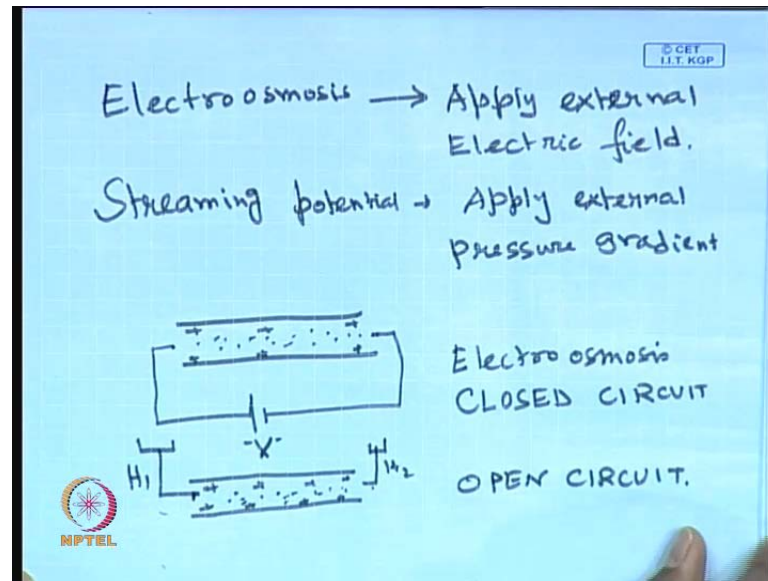 © CET
I.I.T. KGP
Electroosmosis → Apply external
Electric field.
Streaming potential → Apply external
pressure gradient
Electroosmosis
CLOSED CIRCUIT
"V"
H1
H2
OPEN CIRCUIT.
NPTEL